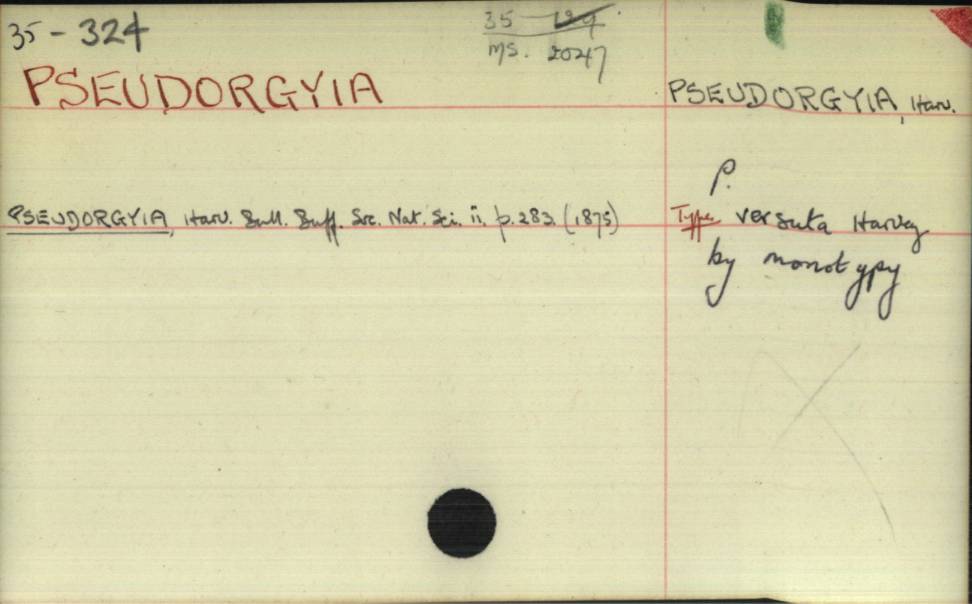 35 - 324
35 - 129
ms. 2047
PSEUDORGYIA
PSEUDORGYIA, Harv.
PSEUDORGYIA, Harv. Bull. Buff. Soc. Nat. Sci. ii. p. 283. (1875)
P.
Type versuta Harvey
by monotypy